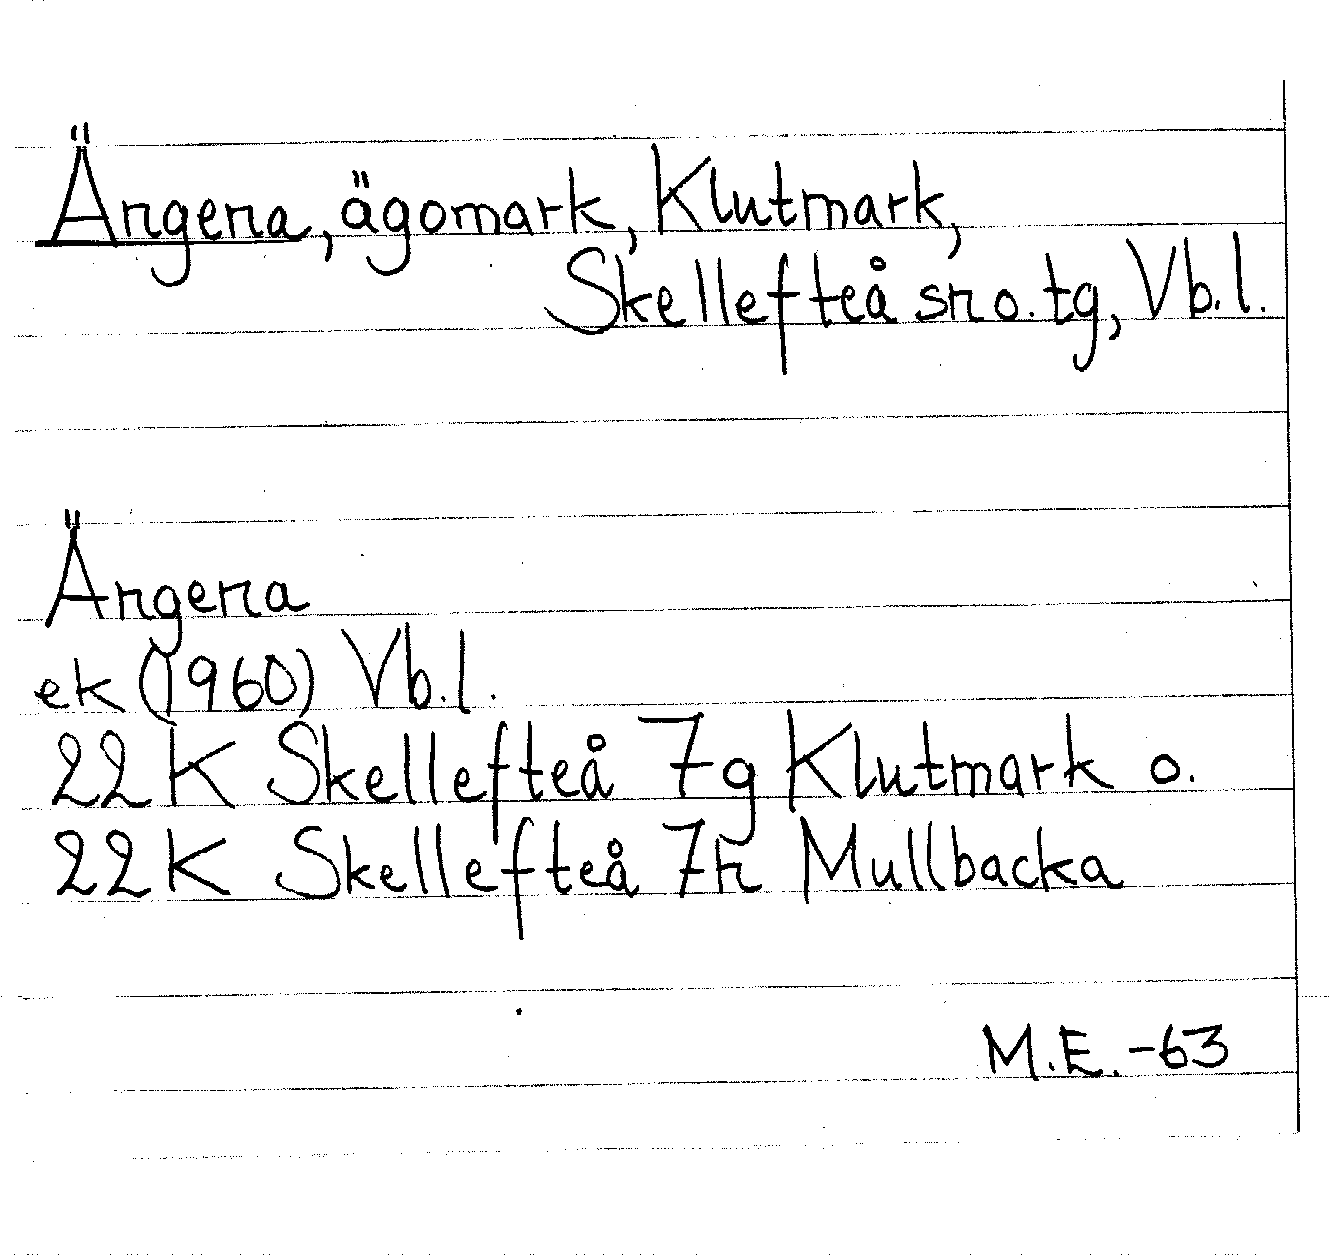 Ängena, ägomark, Klutmark,
Skellefteå sn o. tg, Vb.l.
Ängena
ek (1960) Vb.l.
22K Skellefteå 7g Klutmark o.
22K Skellefteå 7h Mullbacka
M.E. -63